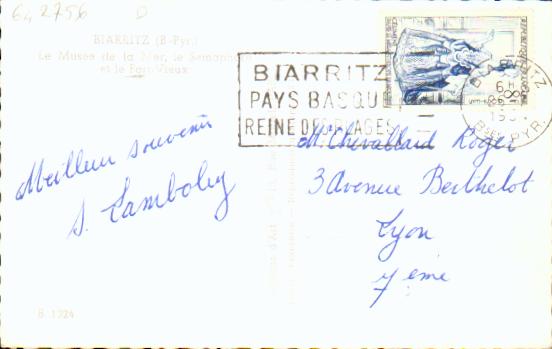 64 2756 D
BIARRITZ (B-Pyr.)
Le Musée de la Mer, le Sémaphore
et le Port-Vieux
BIARRITZ
PAYS BASQUE
REINE DES PLAGES
BIARRITZ
6H
Bses PYR.
Meilleur souvenir
S. Lamboley
Mr Chevallard Roger
3 Avenue Berthelot
Lyon
7ème
B 1324